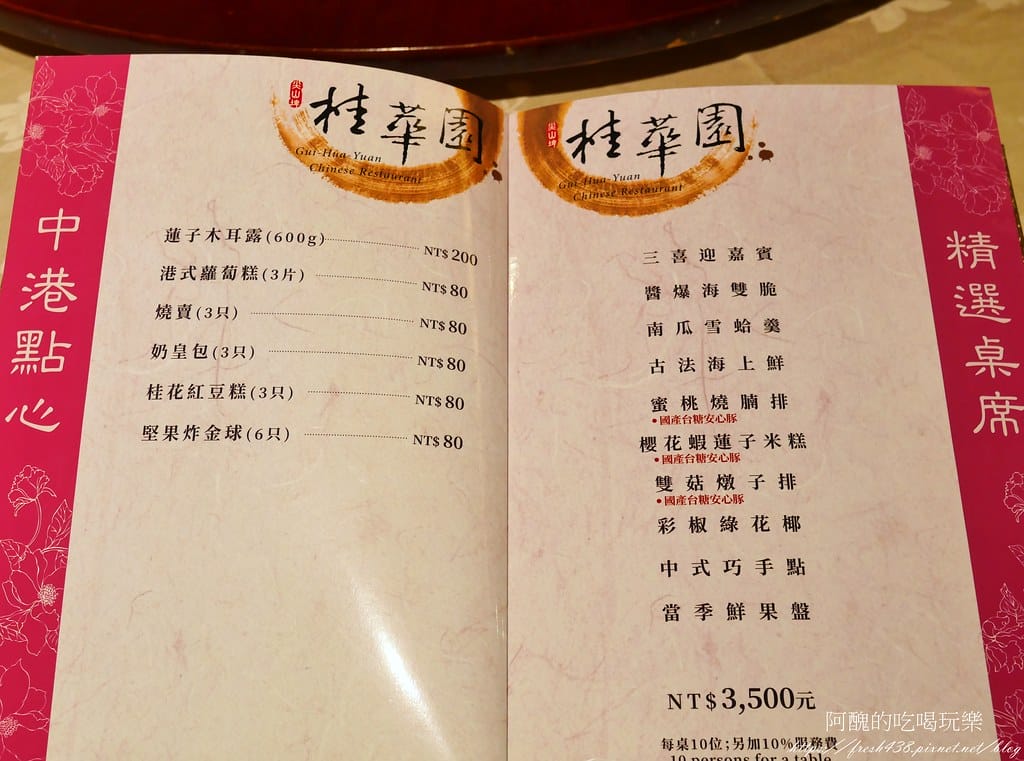 中港點心
尖山埤
桂華園
Gui-Hua-Yuan
Chinese Restaurant
蓮子木耳露(600g) NT$ 200
港式蘿蔔糕(3片) NT$ 80
燒賣(3只) NT$ 80
奶皇包(3只) NT$ 80
桂花紅豆糕(3只) NT$ 80
堅果炸金球(6只) NT$ 80
尖山埤
桂華園
Gui-Hua-Yuan
Chinese Restaurant
三喜迎嘉賓
醬爆海雙脆
南瓜雪蛤羹
古法海上鮮
蜜桃燒腩排
•國產台糖安心豚
櫻花蝦蓮子米糕
•國產台糖安心豚
雙菇燉子排
•國產台糖安心豚
彩椒綠花椰
中式巧手點
當季鮮果盤
NT$3,500元
每桌10位;另加10%服務費
10 persons for a table
精選桌席
阿醜的吃喝玩樂
https://fresh438.pixnet.net/blog